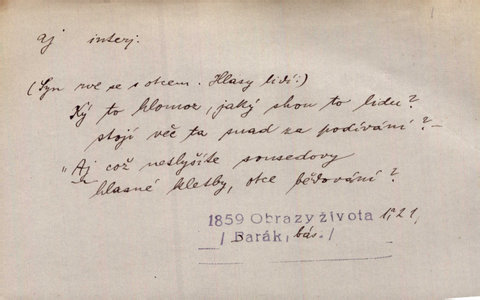 aj interj.
(Syn rve se s otcem. Hlasy lidí:)
Ký to hlomoz, jaký shon to lidu?
stojí věc ta snad za podívání? –
„Aj což neslyšíte sousedovy
hlasné kletby, otce bědování?
1859 Obrazy života 1, 21,
/ Barák, bás. /